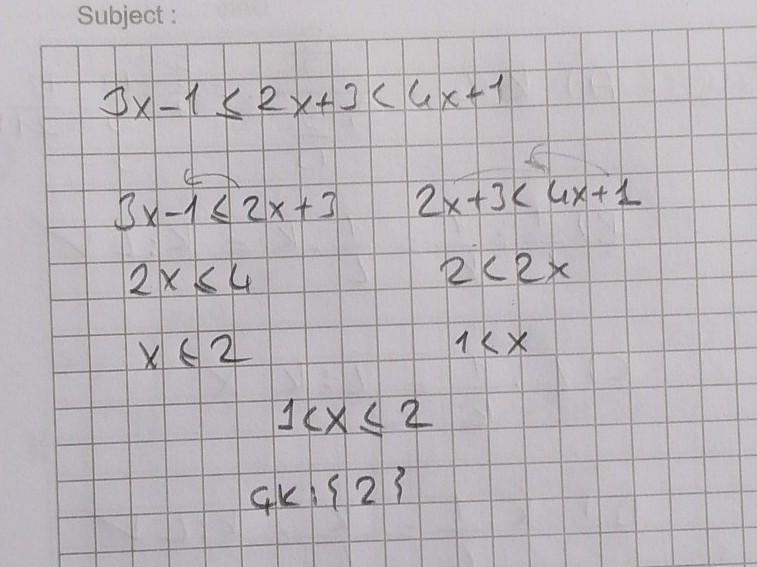 Subject :
3x-1 ≤ 2x+3 < 4x+1
3x-1 ≤ 2x+3 2x+3 < 4x+1
2x ≤ 4 2 < 2x
x ≤ 2 1 < x
1 < x ≤ 2
ÇK: {2}